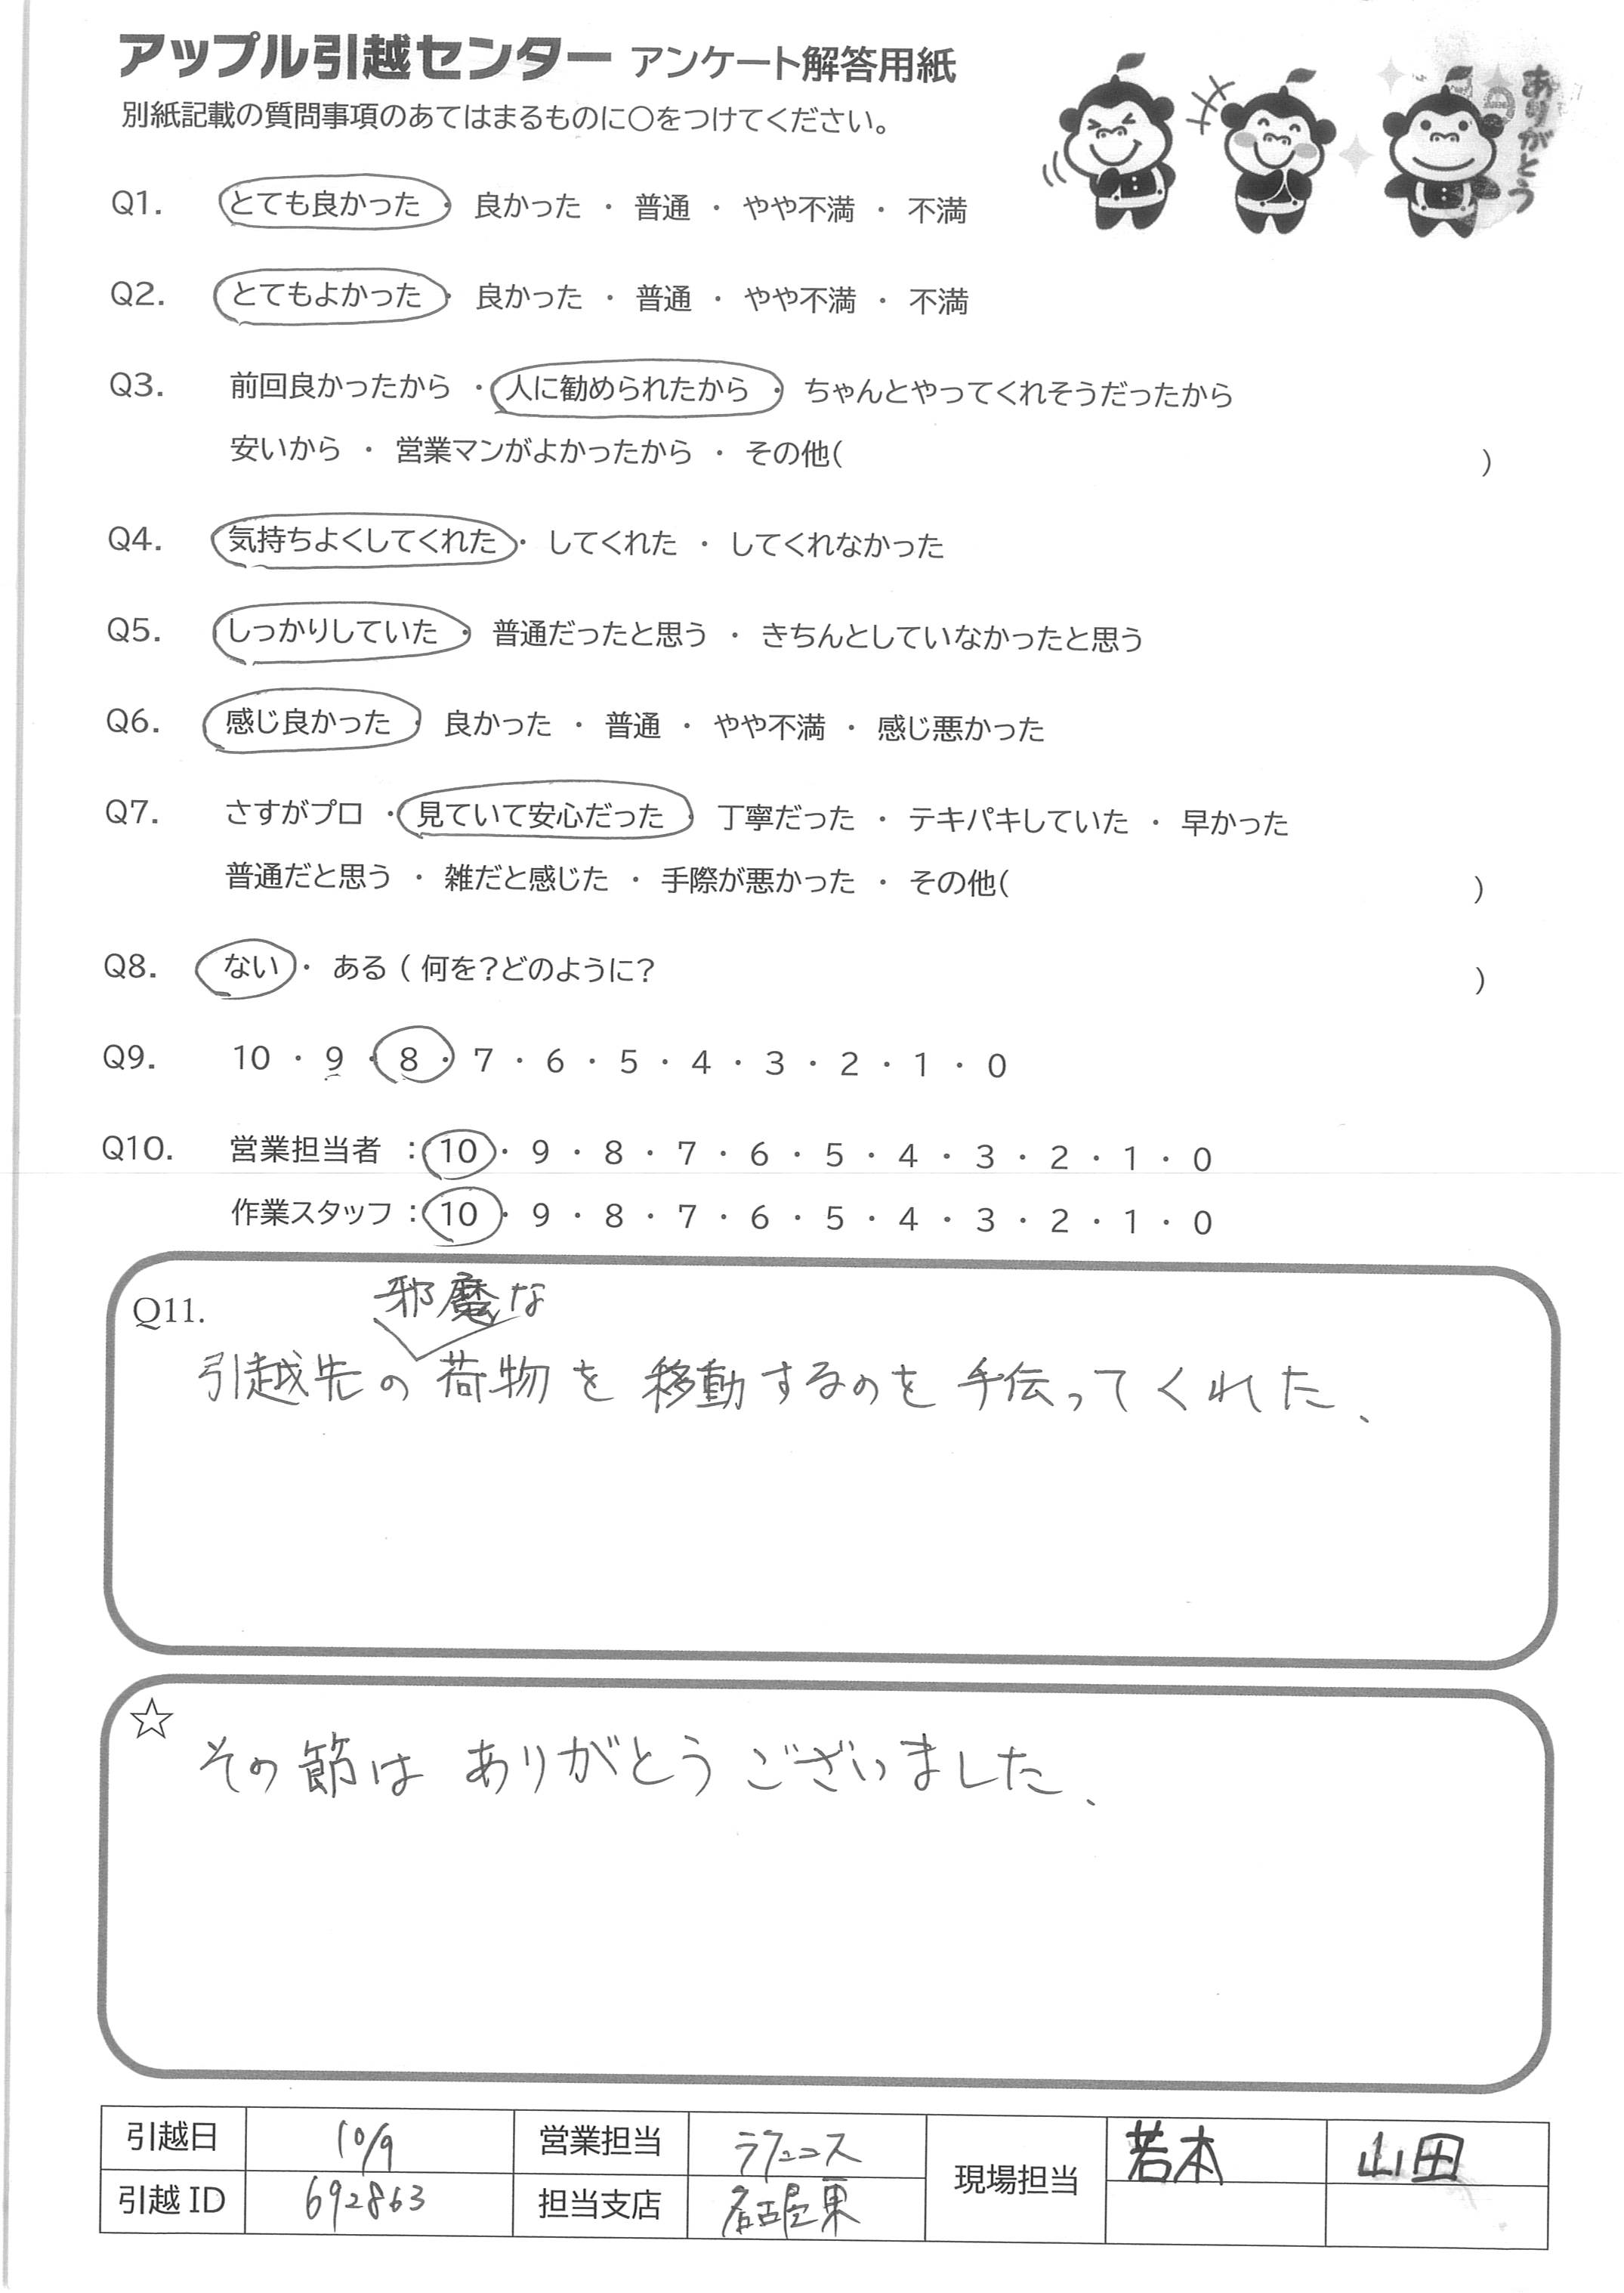 アップル引越センター アンケート解答用紙
別紙記載の質問事項のあてはまるものに○をつけてください。
ありがとう
Q1. とても良かった ・ 良かった ・ 普通 ・ やや不満 ・ 不満
Q2. とてもよかった ・ 良かった ・ 普通 ・ やや不満 ・ 不満
Q3. 前回良かったから ・ 人に勧められたから ・ ちゃんとやってくれそうだったから
安いから ・ 営業マンがよかったから ・ その他( )
Q4. 気持ちよくしてくれた ・ してくれた ・ してくれなかった
Q5. しっかりしていた ・ 普通だったと思う ・ きちんとしていなかったと思う
Q6. 感じ良かった ・ 良かった ・ 普通 ・ やや不満 ・ 感じ悪かった
Q7. さすがプロ ・ 見ていて安心だった ・ 丁寧だった ・ テキパキしていた ・ 早かった
普通だと思う ・ 雑だと感じた ・ 手際が悪かった ・ その他( )
Q8. ない ・ ある ( 何を?どのように? )
Q9. 10 ・ 9 ・ 8 ・ 7 ・ 6 ・ 5 ・ 4 ・ 3 ・ 2 ・ 1 ・ 0
Q10. 営業担当者 : 10 ・ 9 ・ 8 ・ 7 ・ 6 ・ 5 ・ 4 ・ 3 ・ 2 ・ 1 ・ 0
作業スタッフ : 10 ・ 9 ・ 8 ・ 7 ・ 6 ・ 5 ・ 4 ・ 3 ・ 2 ・ 1 ・ 0
Q11.
邪魔な
引越先の荷物を移動するのを手伝ってくれた、
☆
その節は ありがとうございました、
引越日 10/9 営業担当 現場担当 若本 山田
引越ID 692863 担当支店 名古屋東